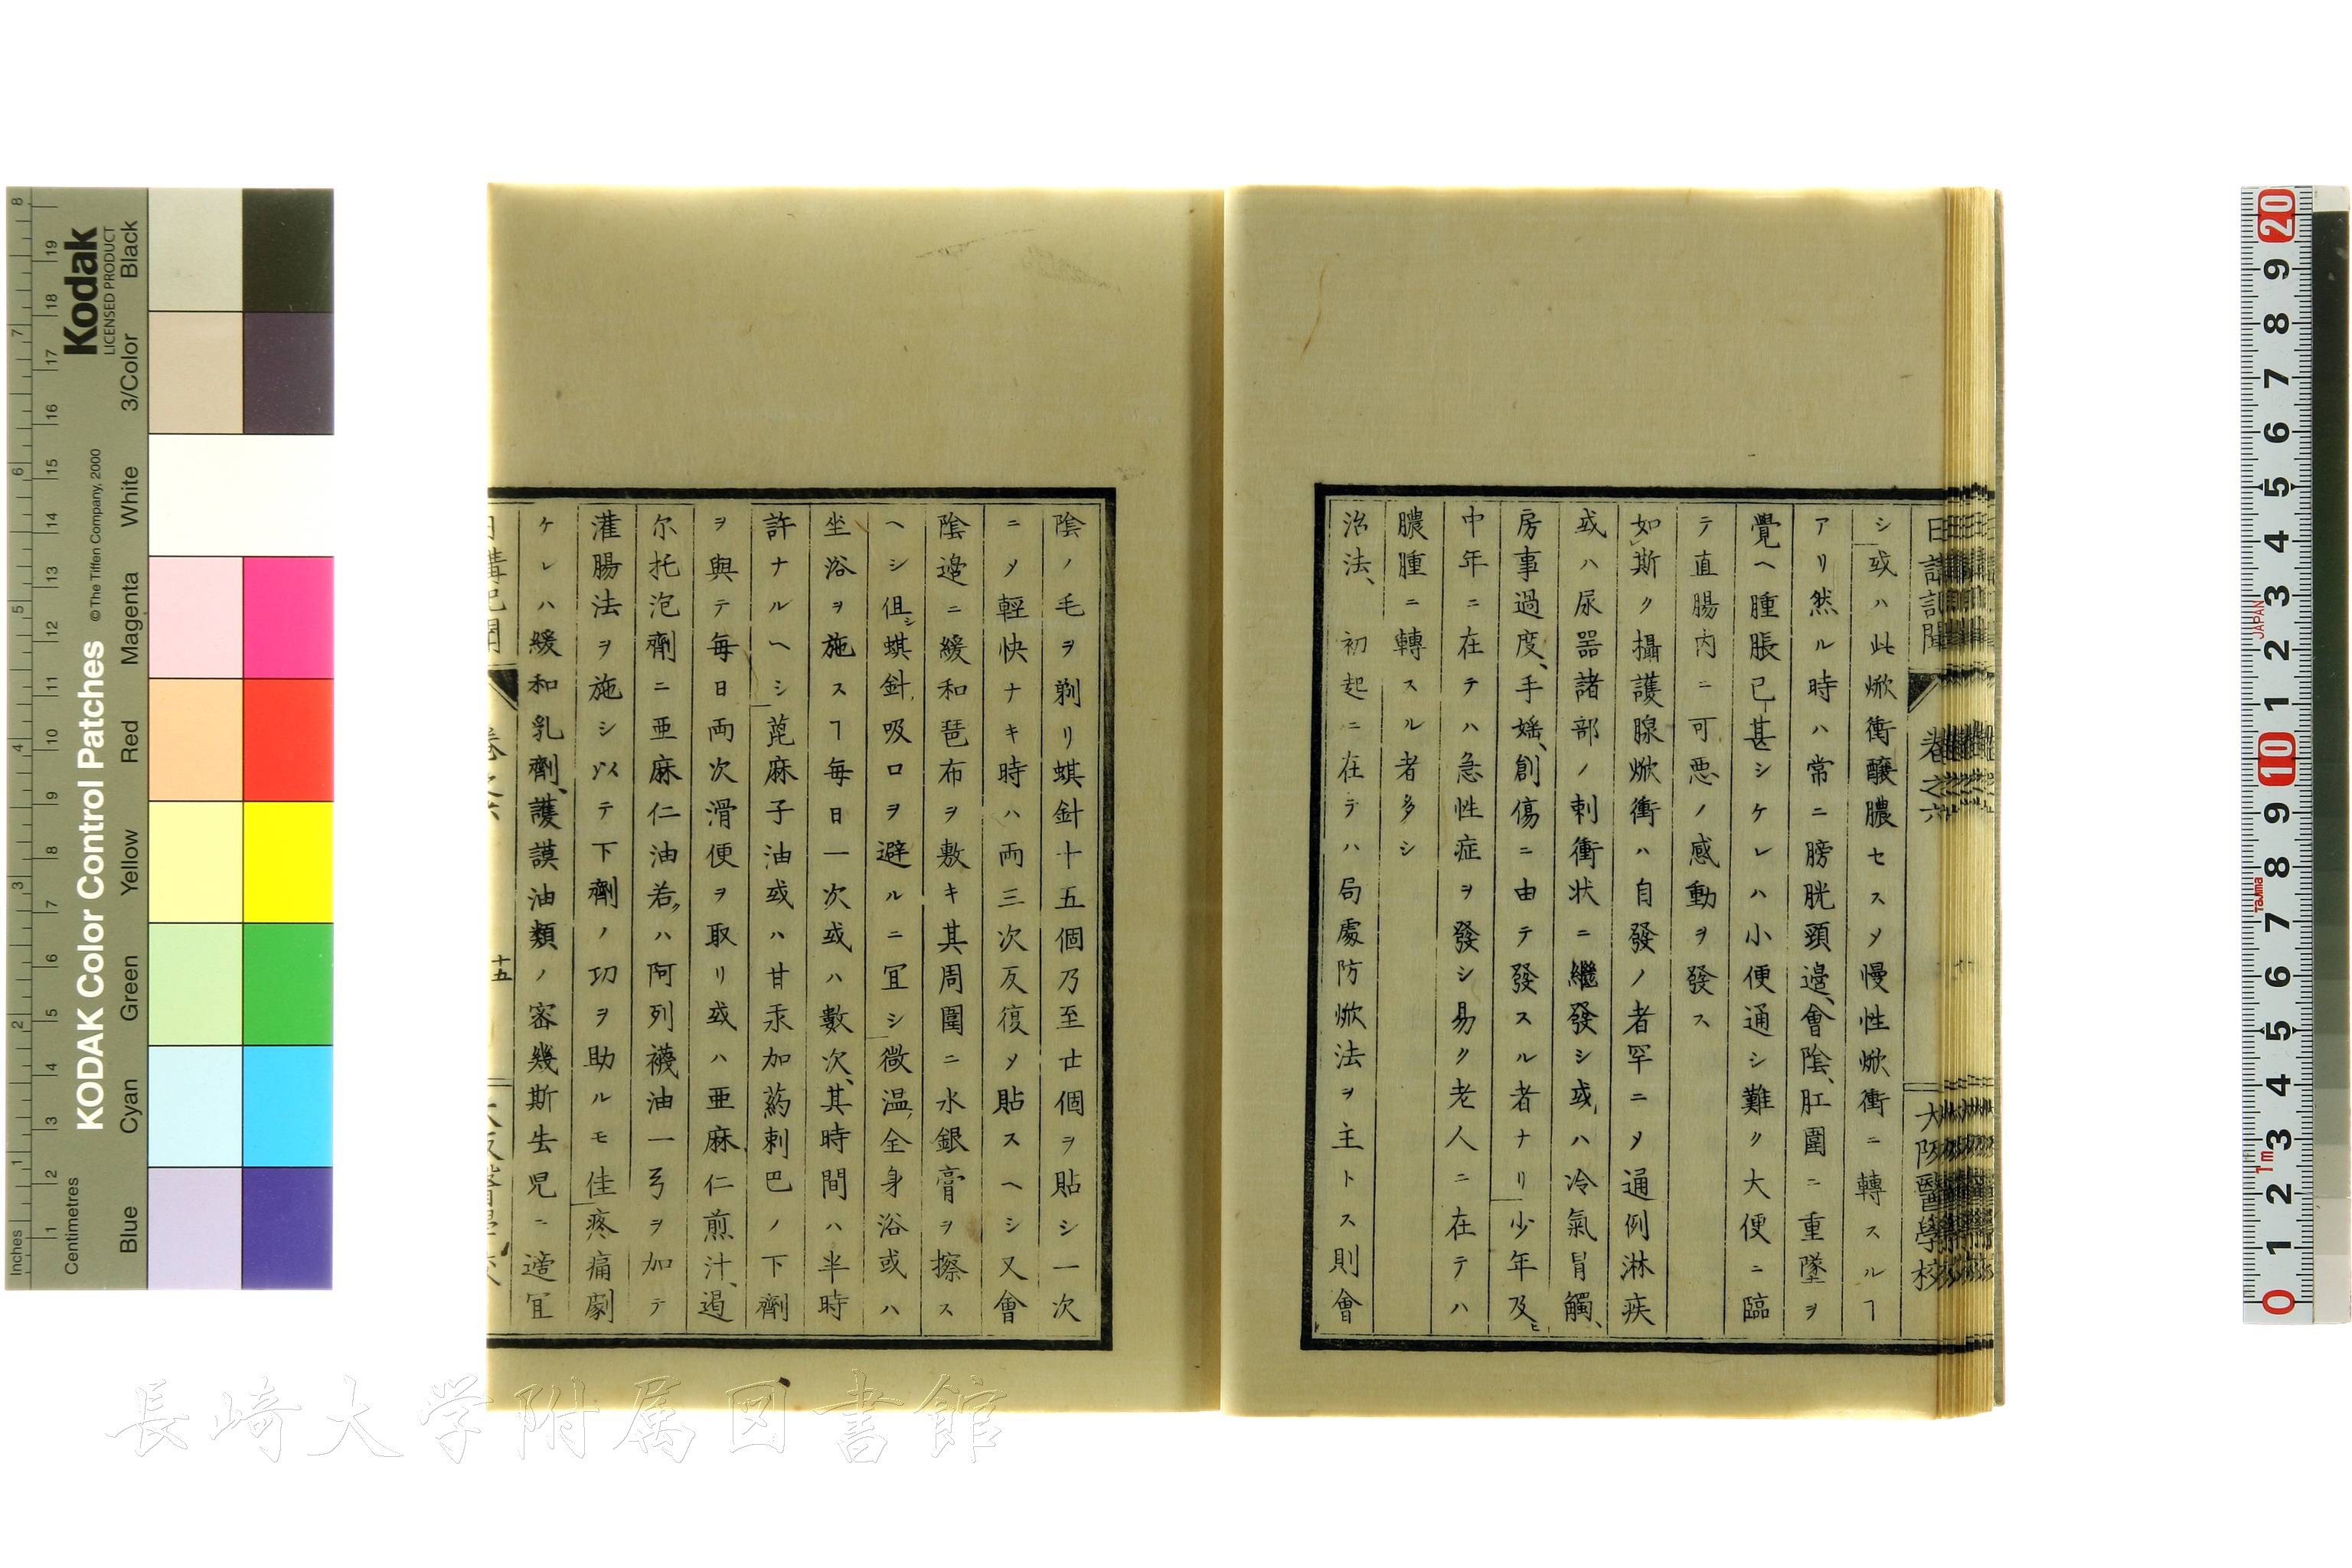 日講記聞 卷之六 大阪醫學校
シ或ハ此焮衝釀膿セスメ慢性焮衝ニ轉スルヿ
アリ然ル時ハ常ニ膀胱頸邉、會陰、肛圍ニ重墜ヲ
覺ヘ腫脹已甚シケレハ小便通シ難ク大便ニ臨
テ直腸内ニ可悪ノ感動ヲ發ス
如斯ク攝護腺焮衝ハ自發ノ者罕ニメ通例淋疾
或ハ尿噐諸部ノ刺衝状ニ繼發シ或ハ冷氣冐觸、
房事過度、手婬、創傷ニ由テ發スル者ナリ少年及ヒ
中年ニ在テハ急性症ヲ發シ易ク老人ニ在テハ
膿腫ニ轉スル者多シ
治法、初起ニ在テハ局處防焮法ヲ主トス則會
陰ノ毛ヲ剃リ蜞針十五個乃至廿個ヲ貼シ一次
ニメ輕快ナキ時ハ両三次反復メ貼スヘシ又會
陰邉ニ緩和琶布ヲ敷キ其周圍ニ水銀膏ヲ擦ス
ヘシ伹シ蜞針吸口ヲ避ルニ冝シ微温全身浴或ハ
坐浴ヲ施スヿ毎日一次或ハ數次、其時間ハ半時
許ナルヘシ蓖麻子油或ハ甘汞加葯刺巴ノ下劑
ヲ與テ毎日両次滑便ヲ取リ或ハ亜麻仁煎汁、遏
尓托泡劑ニ亜麻仁油若クハ阿列襪油一弓ヲ加テ
灌腸法ヲ施シ以テ下劑ノ功ヲ助ルモ佳疼痛劇
ケレハ緩和乳劑、護謨油類ノ密幾斯去児ニ適冝
日講記聞 卷之六 十五 大阪醫學校
KODAK Color Control Patches
© The Tiffen Company, 2000
Kodak
LICENSED PRODUCT
Inches 1 2 3 4 5 6 7 8
Centimetres 1 2 3 4 5 6 7 8 9 10 11 12 13 14 15 16 17 18 19
Blue Cyan Green Yellow Red Magenta White 3/Color Black
20 9 8 7 6 5 4 3 2 1 10 9 8 7 6 5 4 3 2 1 0
JAPAN
Tajima
1m
長崎大学附属図書館